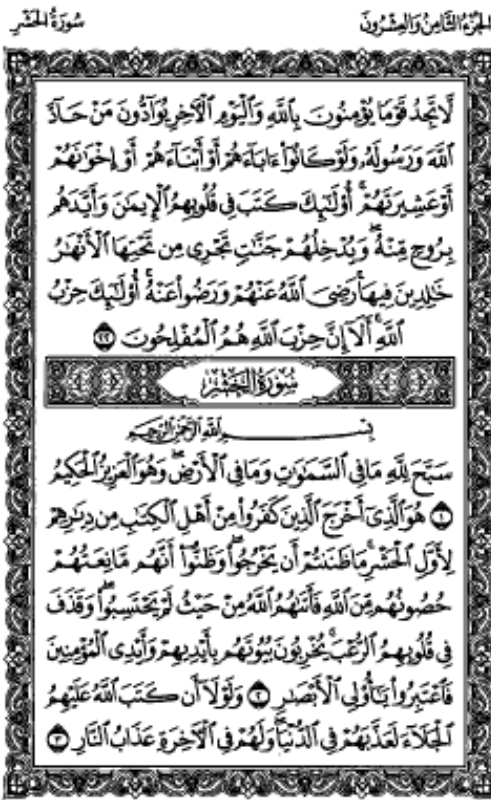 الجُزْءُ الثَّامِنُ وَالعِشْرُونَ
سُورَةُ الحَشْرِ
لَّا تَجِدُ قَوْمًا يُؤْمِنُونَ بِاللَّهِ وَالْيَوْمِ الْآخِرِ يُوَآدُّونَ مَنْ حَآدَّ
اللَّهَ وَرَسُولَهُۥ وَلَوْ كَانُوٓا۟ ءَابَآءَهُمْ أَوْ أَبْنَآءَهُمْ أَوْ إِخْوَٰنَهُمْ
أَوْ عَشِيرَتَهُمْ ۚ أُو۟لَٰٓئِكَ كَتَبَ فِى قُلُوبِهِمُ الْإِيمَٰنَ وَأَيَّدَهُم
بِرُوحٍ مِّنْهُ ۖ وَيُدْخِلُهُمْ جَنَّٰتٍ تَجْرِى مِن تَحْتِهَا الْأَنْهَٰرُ
خَٰلِدِينَ فِيهَا ۚ رَضِىَ اللَّهُ عَنْهُمْ وَرَضُوا۟ عَنْهُ ۚ أُو۟لَٰٓئِكَ حِزْبُ
اللَّهِ ۚ أَلَآ إِنَّ حِزْبَ اللَّهِ هُمُ الْمُفْلِحُونَ ٢٢
سُورَةُ الحَشْرِ
بِسْمِ اللَّهِ الرَّحْمَٰنِ الرَّحِيمِ
سَبَّحَ لِلَّهِ مَا فِى السَّمَٰوَٰتِ وَمَا فِى الْأَرْضِ ۖ وَهُوَ الْعَزِيزُ الْحَكِيمُ
١ هُوَ الَّذِىٓ أَخْرَجَ الَّذِينَ كَفَرُوا۟ مِنْ أَهْلِ الْكِتَٰبِ مِن دِيَٰرِهِمْ
لِأَوَّلِ الْحَشْرِ ۚ مَا ظَنَنتُمْ أَن يَخْرُجُوا۟ ۖ وَظَنُّوٓا۟ أَنَّهُم مَّانِعَتُهُمْ
حُصُونُهُم مِّنَ اللَّهِ فَأَتَىٰهُمُ اللَّهُ مِنْ حَيْثُ لَمْ يَحْتَسِبُوا۟ ۖ وَقَذَفَ
فِى قُلُوبِهِمُ الرُّعْبَ ۚ يُخْرِبُونَ بُيُوتَهُم بِأَيْدِيهِمْ وَأَيْدِى الْمُؤْمِنِينَ
فَاعْتَبِرُوا۟ يَٰٓأُو۟لِى الْأَبْصَٰرِ ٢ وَلَوْلَآ أَن كَتَبَ اللَّهُ عَلَيْهِمُ
الْجَلَآءَ لَعَذَّبَهُمْ فِى الدُّنْيَا ۖ وَلَهُمْ فِى الْآخِرَةِ عَذَابُ النَّارِ ٣